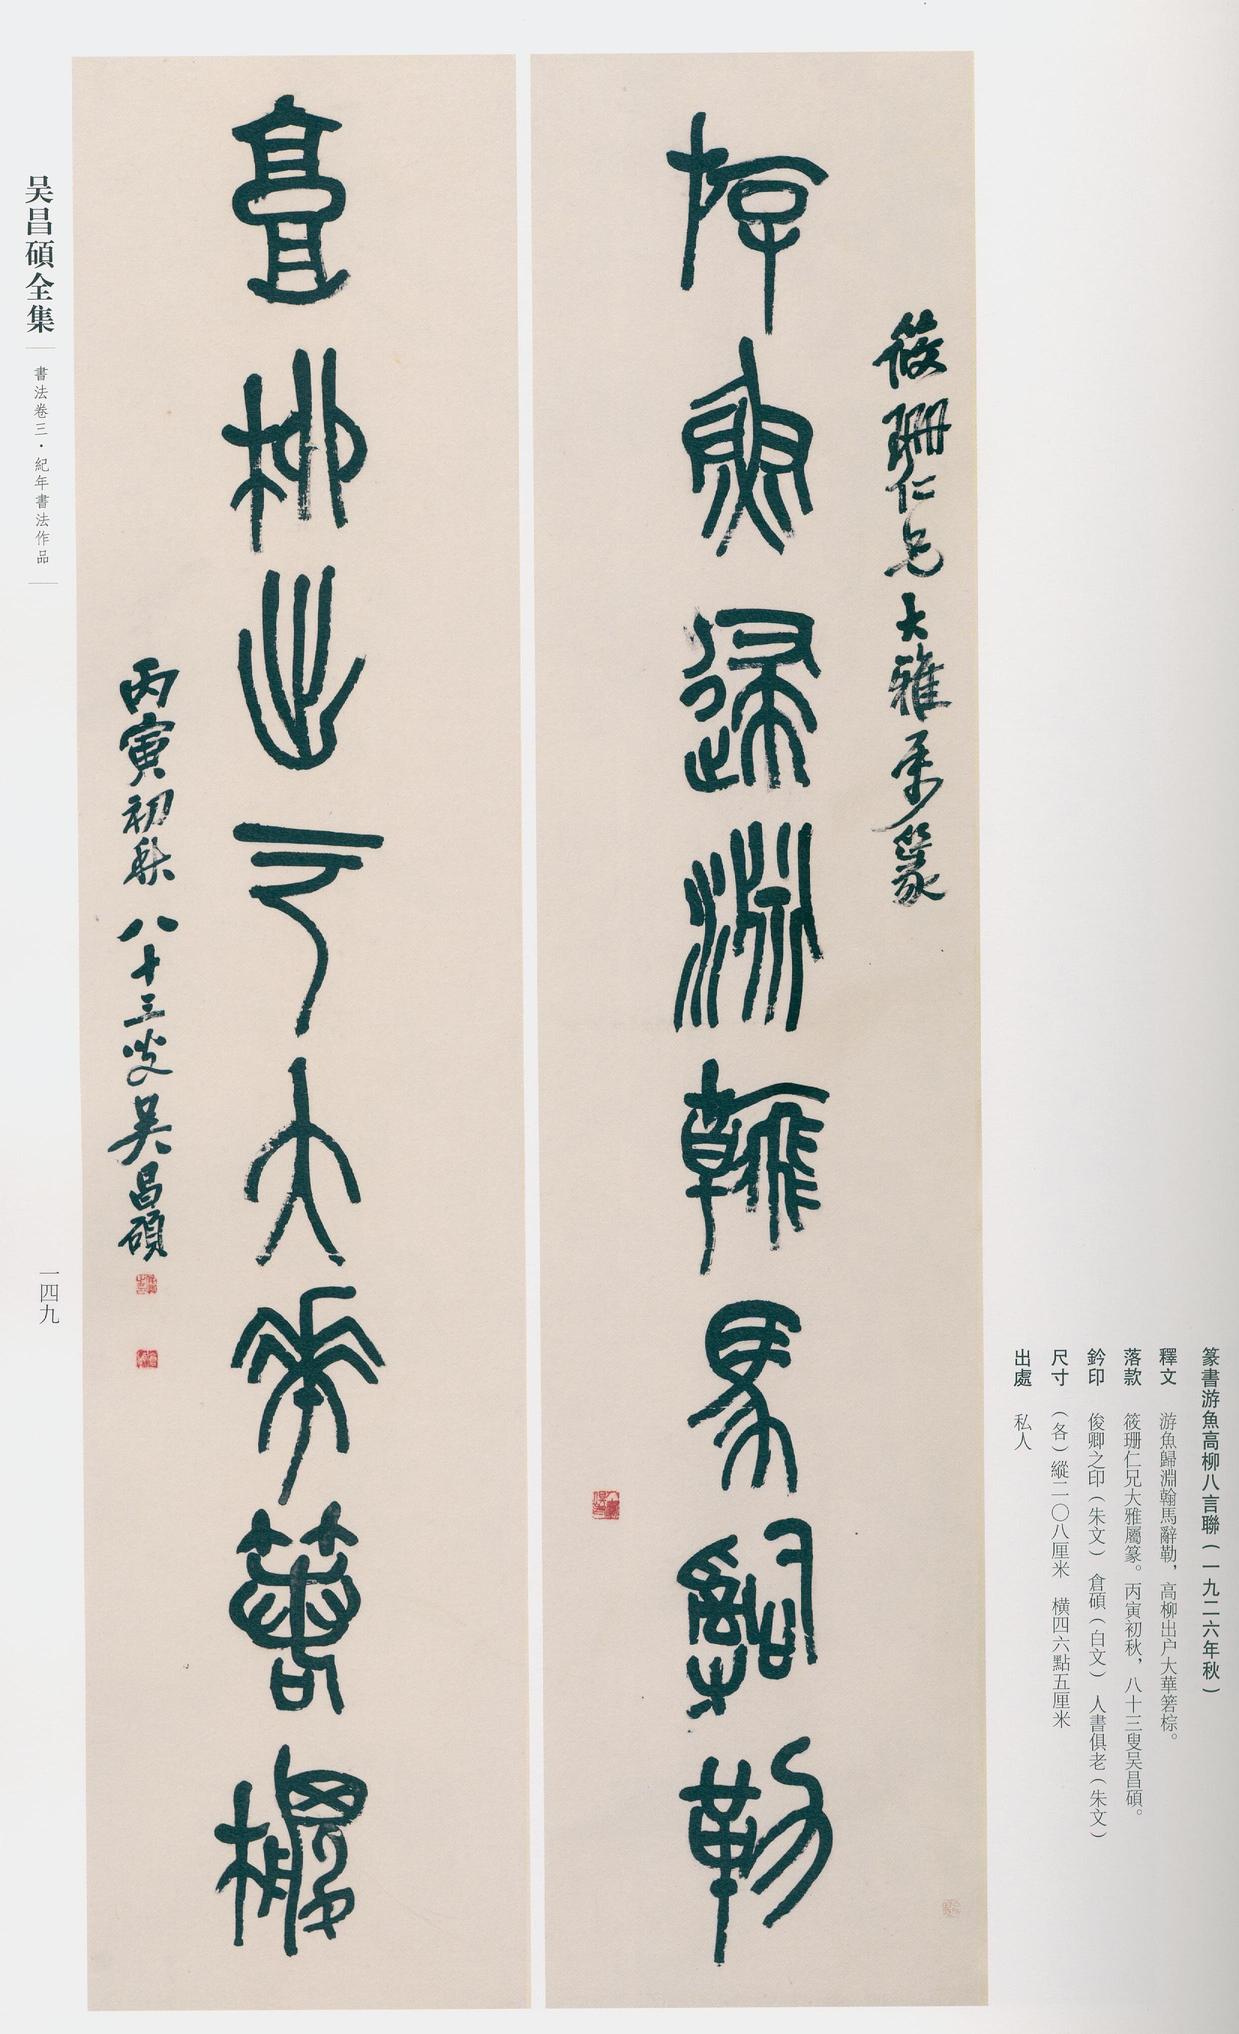 筱珊仁兄大雅屬篆
游魚歸淵翰馬辭勒
高柳出户大華箬椶
丙寅初秋八十三叟吴昌碩
篆書游魚高柳八言聯（一九二六年秋）
釋文　游魚歸淵翰馬辭勒，高柳出户大華箬棕。
落款　筱珊仁兄大雅屬篆。丙寅初秋，八十三叟吴昌碩。
鈐印　俊卿之印（朱文）　倉碩（白文）　人書俱老（朱文）
尺寸　（各）縱二〇八厘米　橫四六點五厘米
出處　私人
吴昌碩全集
書法卷三·紀年書法作品
一四九